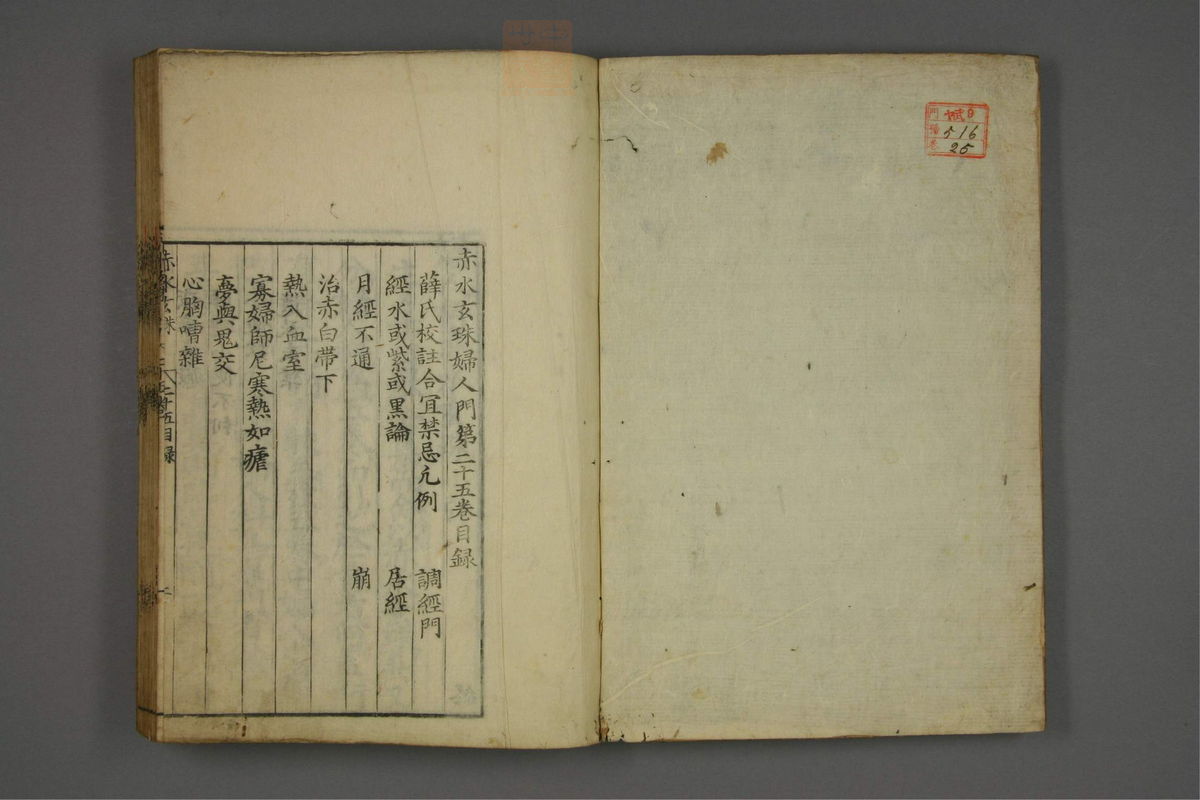 赤水玄珠婦人門第二十五卷目録
薛氏校註合宜禁忌凢例　調經門
經水或紫或黒論　居經
月經不通　崩
治赤白帶下
熱入血室
寡婦師尼寒熱如瘧
夢與鬼交
心胸嘈雜
赤水玄珠
廿五目録
一
門 9
516
25